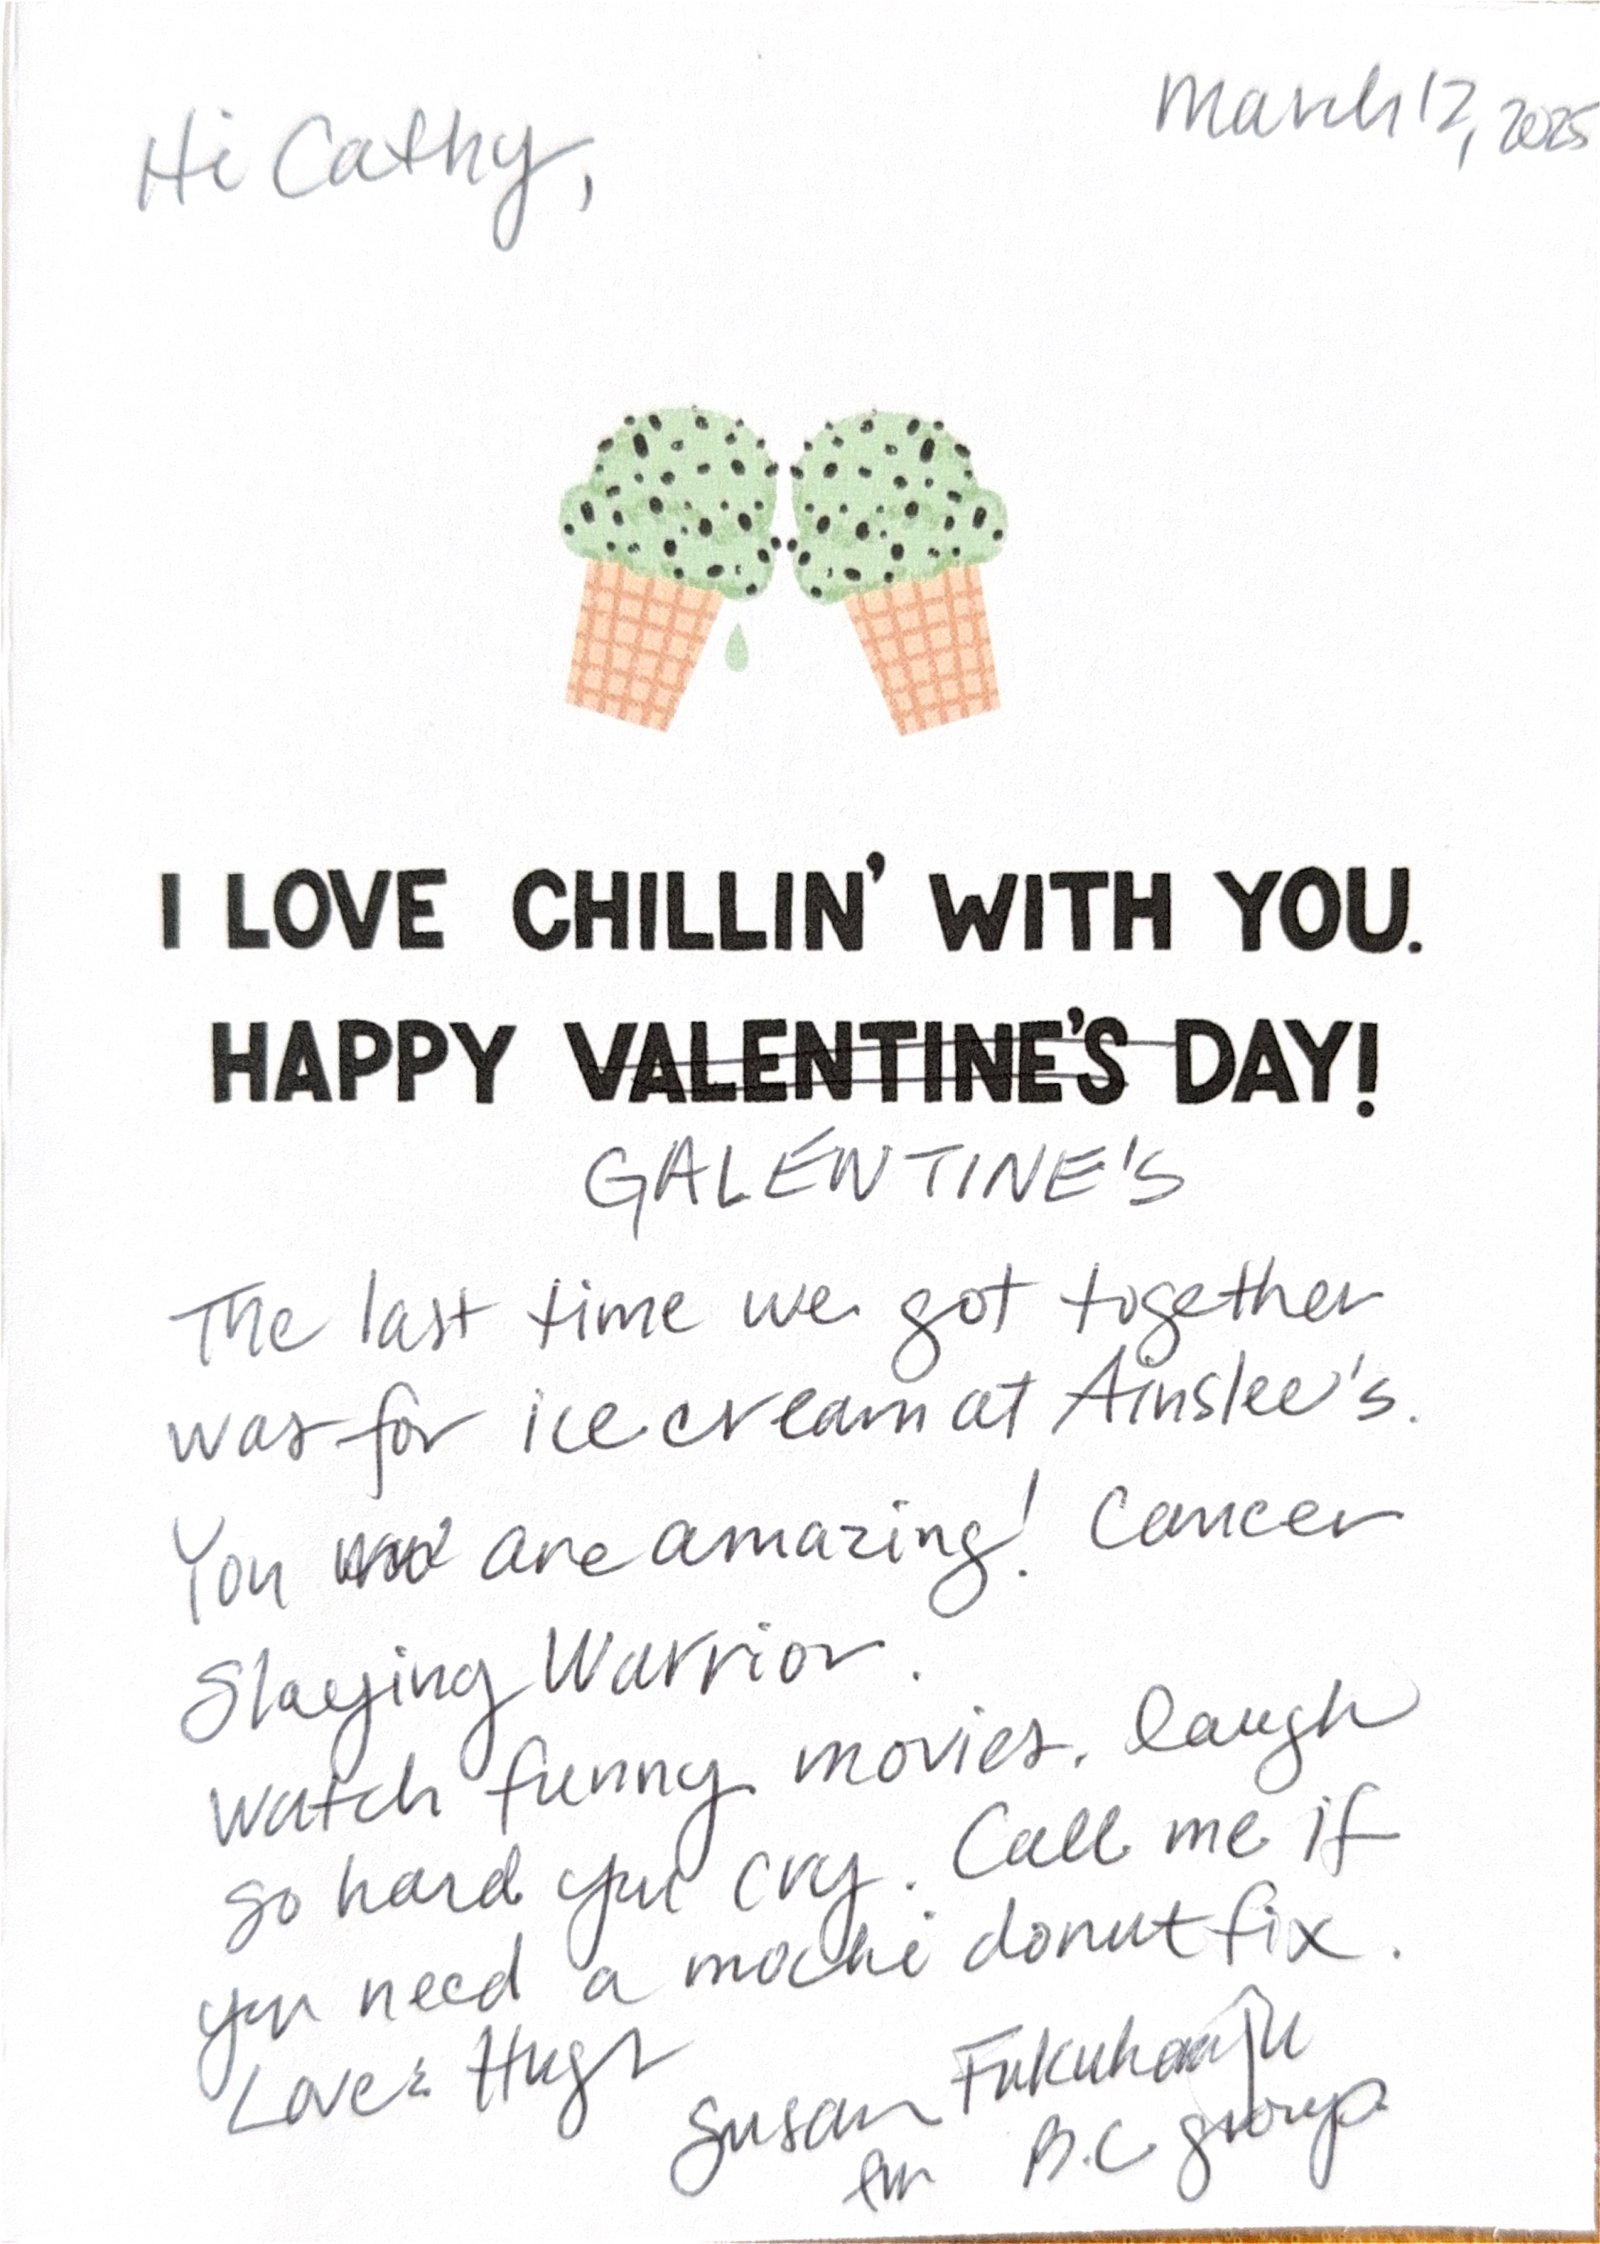 March 12, 2025
Hi Cathy,
I LOVE CHILLIN' WITH YOU.
HAPPY VALENTINE'S DAY!
GALENTINE'S
The last time we got together
was for ice cream at Ainslee's.
You are amazing! Cancer
Slaying Warrior.
Watch funny movies. laugh
so hard you cry. Call me if
you need a mochi donut fix.
Love & Hugs
Susan
B.C group